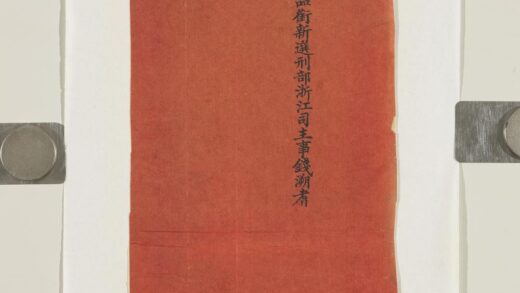 品銜新選刑部浙江司主事錢溯耆